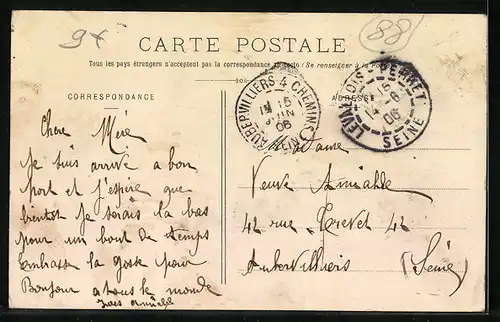 9x
88
CARTE POSTALE
Tous les pays étrangers n'acceptent pas la correspondance au recto (Se renseigner à la Poste)
CORRESPONDANCE
ADRESSE
AUBERVILLIERS 4 CHEMINS
15
JUIN
06
LEVALLOIS-PERRET
15
14-6
06
SEINE
Chere Mére
Je suis arrivé a bon
port et j'espère que
bientot je serais la bas
pour un bout de temps
embrasse la gosse pour
Bonjour a tous le monde
Madame
Veuve Amiable
42 rue Trevet 42
Aubervilliers
(Seine)